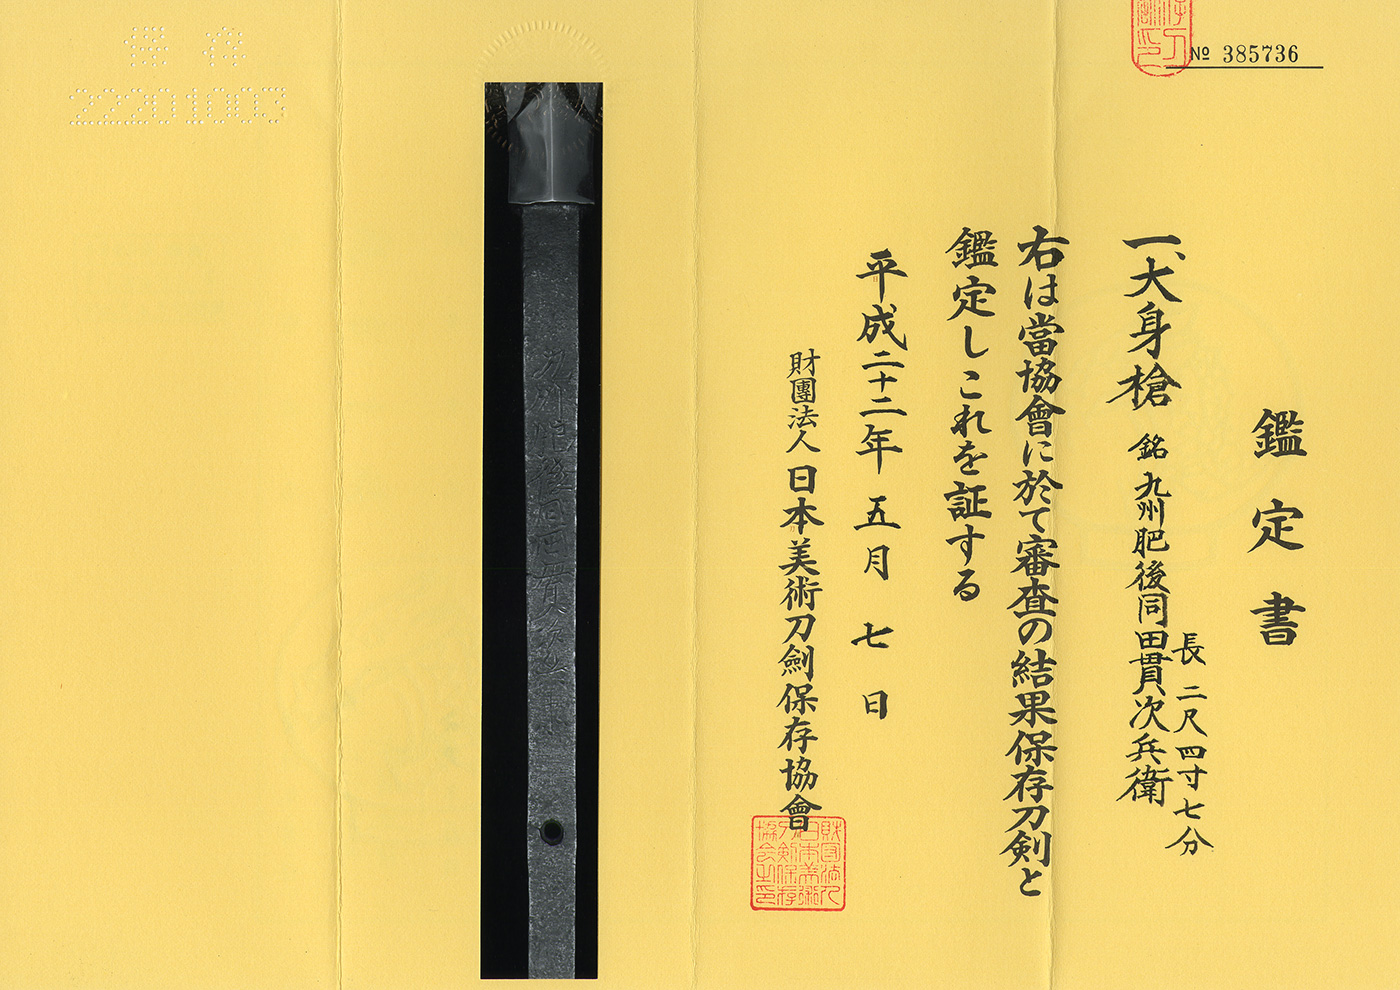 № 385736
鑑定書
一、大身槍 銘 九州肥後同田貫次兵衛
長 二尺四寸七分
右は當協會に於て審査の結果保存刀剣と
鑑定しこれを証する
平成二十二年 五月 七日
財團法人 日本美術刀劍保存協會
財団法人
日本美術
刀剣保存
協会之印
九州肥後同田貫次兵衛
保存
22201003